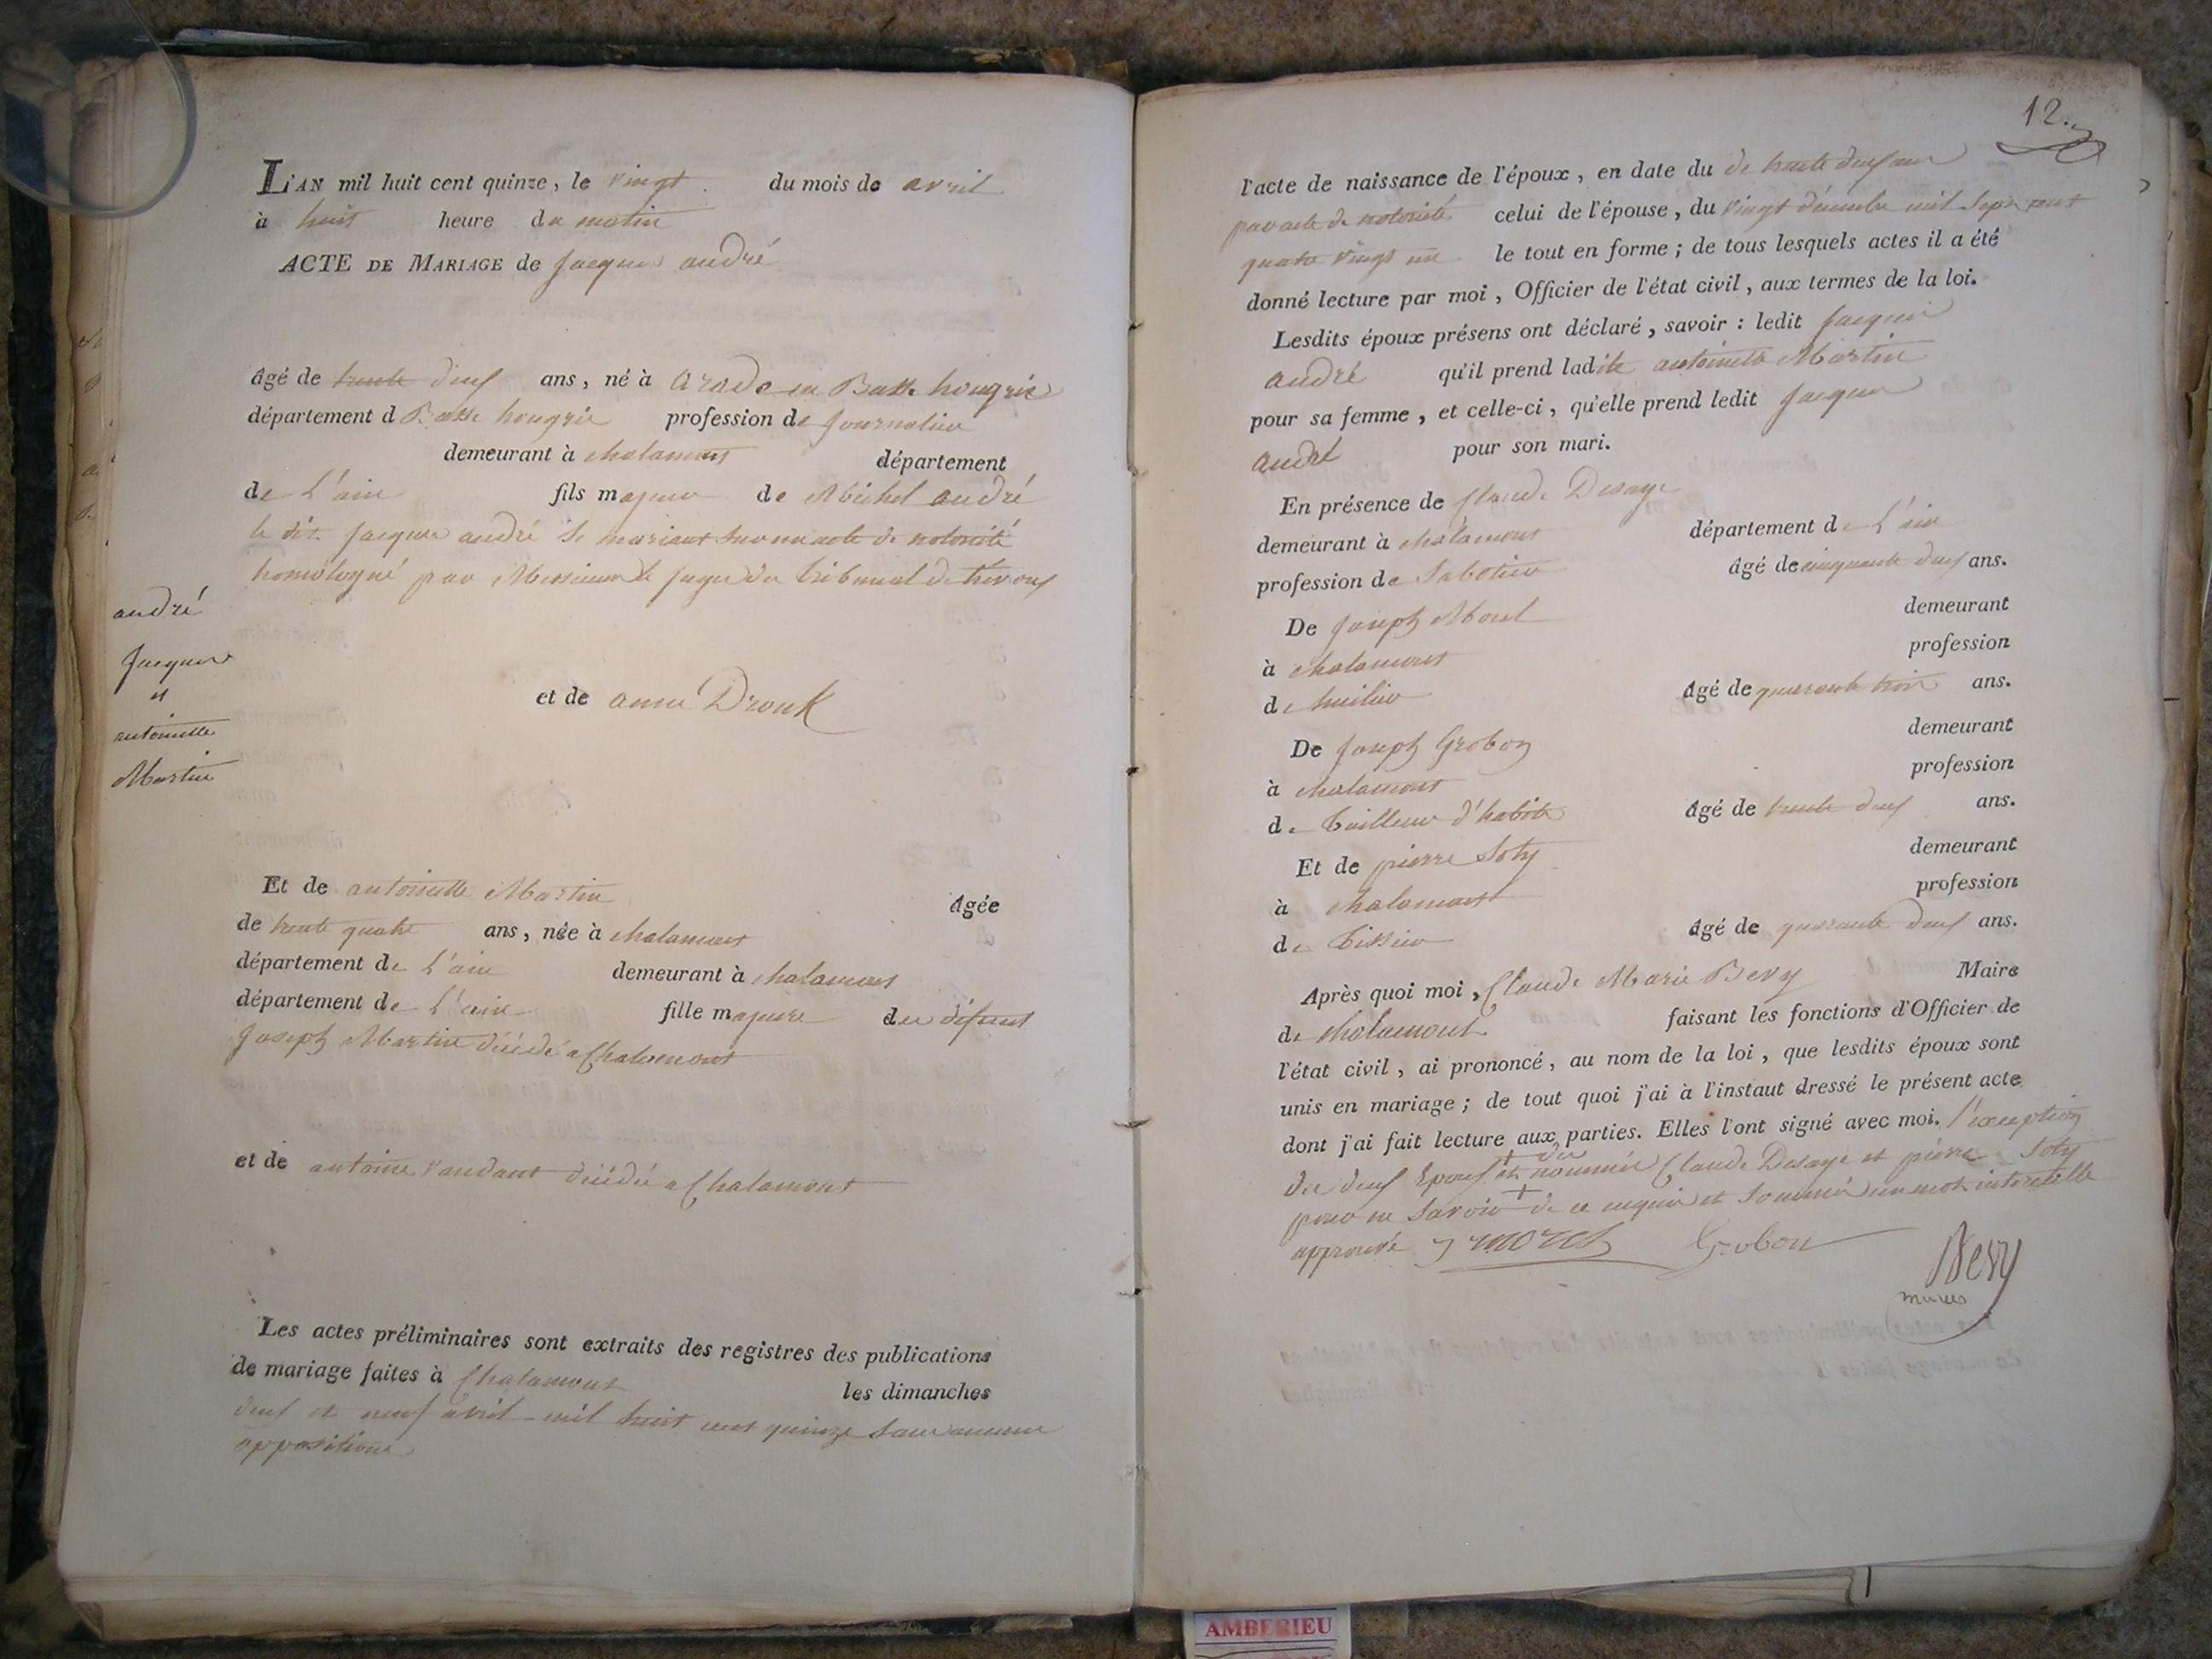 L'AN mil huit cent quinze, le vingt du mois de avril
à huit heure du matin
ACTE DE MARIAGE de Jacques andré
âgé de trente deux ans, né à arade en Basse hongrie
département d Basse hongrie profession de Journalier
demeurant à chalamont département
de L'ain fils majeur de Michel andré
le dit Jacques andré se mariant sur un acte de notorieté
homologué par Messieurs le juges du tribunal de trevoux
andré
Jacques
et
antoinette
Martin
et de anne Drouk
Et de antoinette Martin Agée
de trente quatre ans, née à chalamont
département de L'ain demeurant à chalamont
département de L'ain fille majeure de défunt
Joseph Martin décédé a Chalamont
et de antoine vaudant décédée a Chalamont
Les actes préliminaires sont extraits des registres des publications
de mariage faites à Chalamont les dimanches
deux et neuf avril mil huit cent quinze sans aucune
oppositions
12.
l'acte de naissance de l'époux, en date du de trente deux ans
par acte de notorieté celui de l'épouse, du vingt décembre mil sept cent
quatre vingt un le tout en forme; de tous lesquels actes il a été
donné lecture par moi, Officier de l'état civil, aux termes de la loi.
Lesdits époux présens ont déclaré, savoir: ledit Jacques
andré qu'il prend ladite antoinette Martin
pour sa femme, et celle-ci, qu'elle prend ledit Jacques
andré pour son mari.
En présence de Claude Desaye
demeurant à chalamont département de L'ain
profession de Sabotier âgé de cinquante deux ans.
De Joseph Morel demeurant
à chalamont profession
de huilier âgé de quarante trois ans.
De Joseph Grobon demeurant
à chalamont profession
de Tailleur d'habits âgé de trente deux ans.
Et de pierre Soty demeurant
à chalamont profession
de Tissier âgé de quarante deux ans.
Après quoi moi, Claude Marie Bevy Maire
de chalamont faisant les fonctions d'Officier de
l'état civil, ai prononcé, au nom de la loi, que lesdits époux sont
unis en mariage; de tout quoi j'ai à l'instaut dressé le présent acte
dont j'ai fait lecture aux parties. Elles l'ont signé avec moi. l'exeption
des deux Epoux et des nommés Claude Desaye et pierre Soty
pour ne savoir de ce enquis et sommés un mot interetelle
approuvé J morel Grobon
Bevy
maire
AMBERIEU